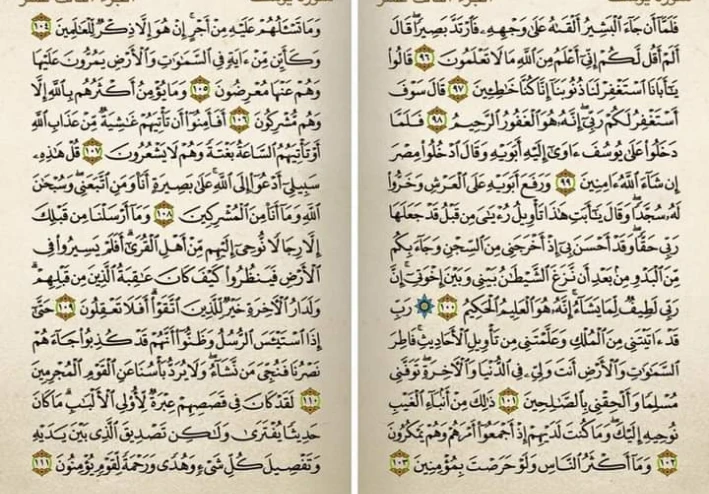 فَلَمَّا أَن جَاءَ الْبَشِيرُ أَلْقَىٰهُ عَلَىٰ وَجْهِهِ فَارْتَدَّ بَصِيرًا قَالَ
أَلَمْ أَقُل لَّكُمْ إِنِّي أَعْلَمُ مِنَ اللَّهِ مَا لَا تَعْلَمُونَ ٩٦ قَالُوا
يَٰأَبَانَا اسْتَغْفِرْ لَنَا ذُنُوبَنَا إِنَّا كُنَّا خَٰطِـِٔينَ ٩٧ قَالَ سَوْفَ
أَسْتَغْفِرُ لَكُمْ رَبِّي إِنَّهُ هُوَ الْغَفُورُ الرَّحِيمُ ٩٨ فَلَمَّا
دَخَلُوا عَلَىٰ يُوسُفَ ءَاوَىٰ إِلَيْهِ أَبَوَيْهِ وَقَالَ ادْخُلُوا مِصْرَ
إِن شَاءَ اللَّهُ ءَامِنِينَ ٩٩ وَرَفَعَ أَبَوَيْهِ عَلَى الْعَرْشِ وَخَرُّوا
لَهُ سُجَّدًا وَقَالَ يَٰأَبَتِ هَٰذَا تَأْوِيلُ رُءْيَٰىَ مِن قَبْلُ قَدْ جَعَلَهَا
رَبِّي حَقًّا وَقَدْ أَحْسَنَ بِي إِذْ أَخْرَجَنِي مِنَ السِّجْنِ وَجَاءَ بِكُم
مِّنَ الْبَدْوِ مِن بَعْدِ أَن نَّزَغَ الشَّيْطَٰنُ بَيْنِي وَبَيْنَ إِخْوَتِي إِنَّ
رَبِّي لَطِيفٌ لِّمَا يَشَاءُ إِنَّهُ هُوَ الْعَلِيمُ الْحَكِيمُ ١٠٠ رَبِّ
قَدْ ءَاتَيْتَنِي مِنَ الْمُلْكِ وَعَلَّمْتَنِي مِن تَأْوِيلِ الْأَحَادِيثِ فَاطِرَ
السَّمَٰوَٰتِ وَالْأَرْضِ أَنتَ وَلِيِّۦ فِي الدُّنْيَا وَالْآخِرَةِ تَوَفَّنِي
مُسْلِمًا وَأَلْحِقْنِي بِالصَّٰلِحِينَ ١٠١ ذَٰلِكَ مِنْ أَنبَاءِ الْغَيْبِ
نُوحِيهِ إِلَيْكَ وَمَا كُنتَ لَدَيْهِمْ إِذْ أَجْمَعُوا أَمْرَهُمْ وَهُمْ يَمْكُرُونَ
١٠٢ وَمَا أَكْثَرُ النَّاسِ وَلَوْ حَرَصْتَ بِمُؤْمِنِينَ ١٠٣
وَمَا تَسْـَٔلُهُمْ عَلَيْهِ مِنْ أَجْرٍ إِنْ هُوَ إِلَّا ذِكْرٌ لِّلْعَٰلَمِينَ ١٠٤
وَكَأَيِّن مِّنْ ءَايَةٍ فِي السَّمَٰوَٰتِ وَالْأَرْضِ يَمُرُّونَ عَلَيْهَا
وَهُمْ عَنْهَا مُعْرِضُونَ ١٠٥ وَمَا يُؤْمِنُ أَكْثَرُهُم بِاللَّهِ إِلَّا
وَهُم مُّشْرِكُونَ ١٠٦ أَفَأَمِنُوا أَن تَأْتِيَهُمْ غَٰشِيَةٌ مِّنْ عَذَابِ اللَّهِ
أَوْ تَأْتِيَهُمُ السَّاعَةُ بَغْتَةً وَهُمْ لَا يَشْعُرُونَ ١٠٧ قُلْ هَٰذِهِ
سَبِيلِي أَدْعُوا إِلَى اللَّهِ عَلَىٰ بَصِيرَةٍ أَنَا وَمَنِ اتَّبَعَنِي وَسُبْحَٰنَ
اللَّهِ وَمَا أَنَا مِنَ الْمُشْرِكِينَ ١٠٨ وَمَا أَرْسَلْنَا مِن قَبْلِكَ
إِلَّا رِجَالًا نُّوحِي إِلَيْهِم مِّنْ أَهْلِ الْقُرَىٰ أَفَلَمْ يَسِيرُوا فِي
الْأَرْضِ فَيَنظُرُوا كَيْفَ كَانَ عَٰقِبَةُ الَّذِينَ مِن قَبْلِهِمْ
وَلَدَارُ الْآخِرَةِ خَيْرٌ لِّلَّذِينَ اتَّقَوْا أَفَلَا تَعْقِلُونَ ١٠٩ حَتَّىٰ
إِذَا اسْتَيْـَٔسَ الرُّسُلُ وَظَنُّوا أَنَّهُمْ قَدْ كُذِبُوا جَاءَهُمْ
نَصْرُنَا فَنُجِّيَ مَن نَّشَاءُ وَلَا يُرَدُّ بَأْسُنَا عَنِ الْقَوْمِ الْمُجْرِمِينَ
١١٠ لَقَدْ كَانَ فِي قَصَصِهِمْ عِبْرَةٌ لِّأُولِي الْأَلْبَٰبِ مَا كَانَ
حَدِيثًا يُفْتَرَىٰ وَلَٰكِن تَصْدِيقَ الَّذِي بَيْنَ يَدَيْهِ
وَتَفْصِيلَ كُلِّ شَيْءٍ وَهُدًى وَرَحْمَةً لِّقَوْمٍ يُؤْمِنُونَ ١١١